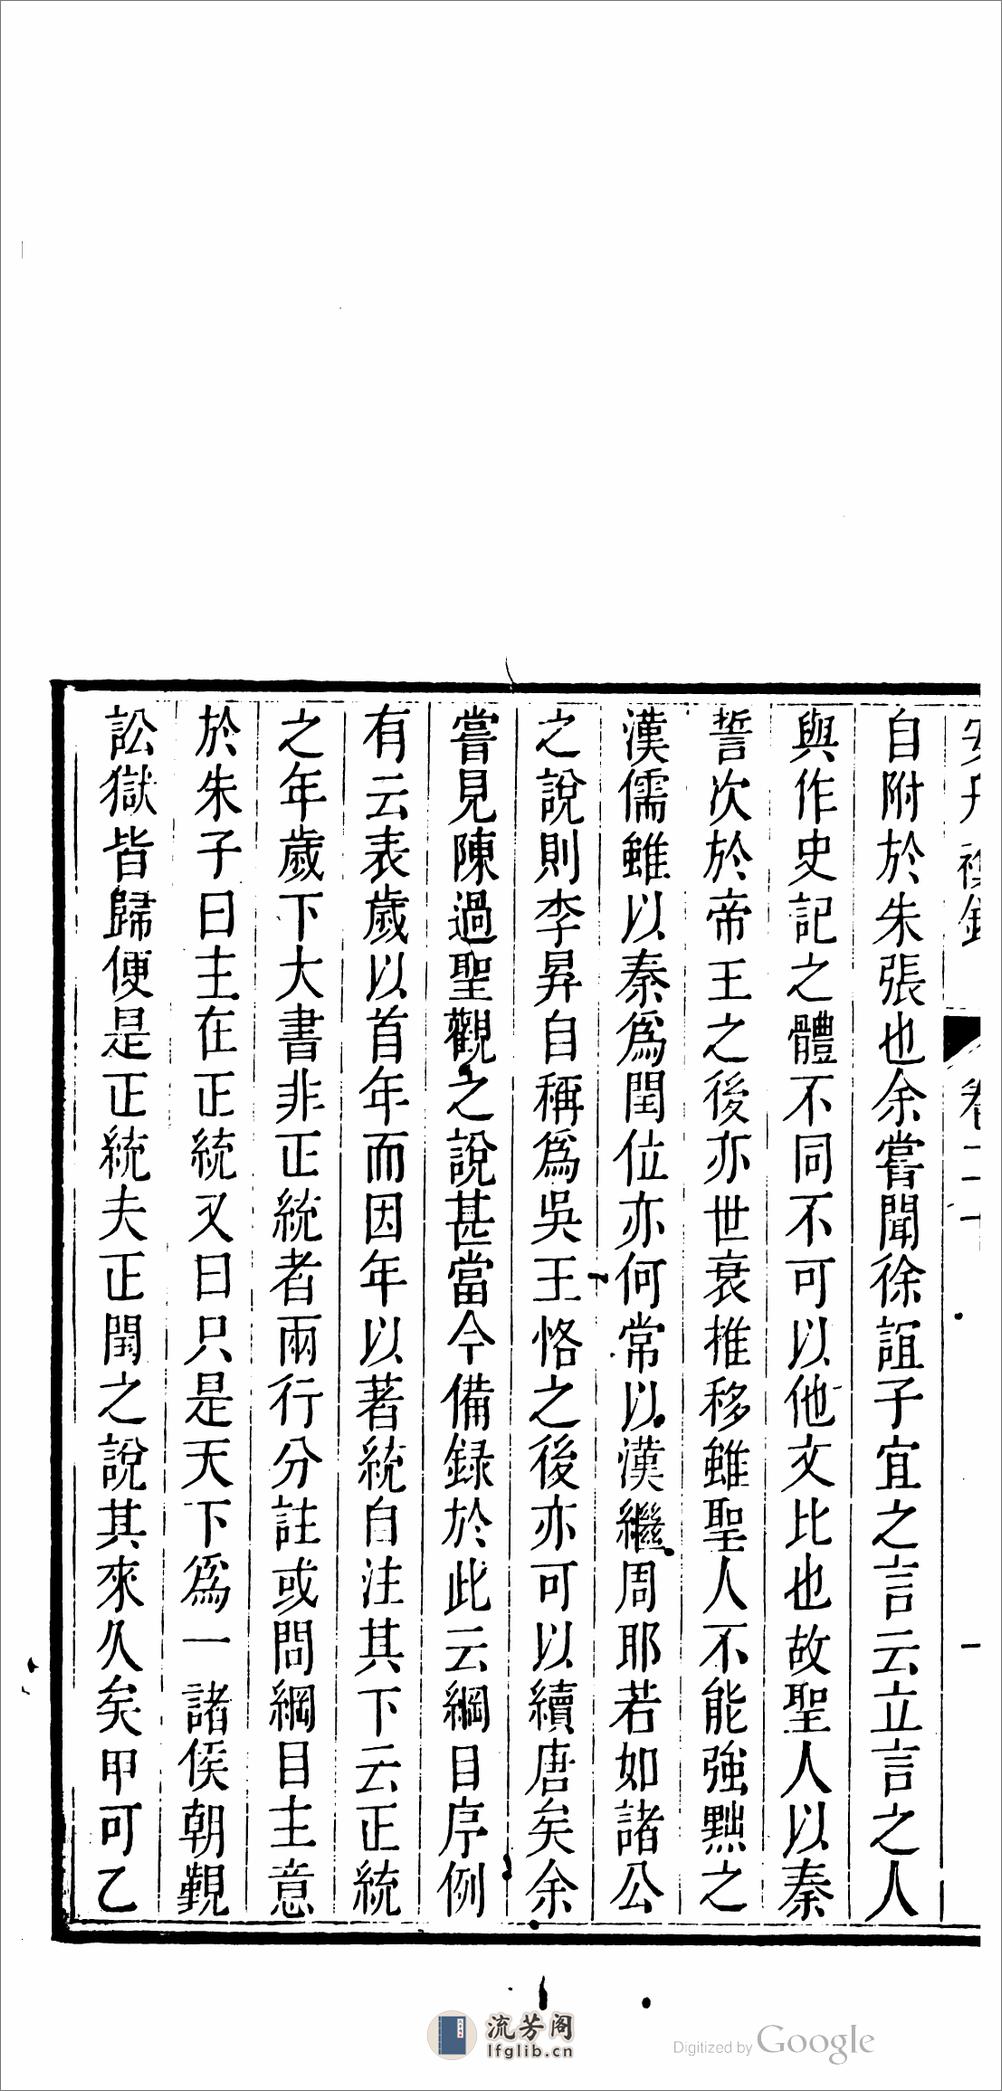 卷二十
自附於朱張也余嘗聞徐誼子宜之言云立言之人
與作史記之體不同不可以他文比也故聖人以秦
誓次於帝王之後亦世衰推移雖聖人不能強黜之
漢儒雖以秦爲閏位亦何常以漢繼周耶若如諸公
之說則李昪自稱爲吳王恪之後亦可以續唐矣余
嘗見陳過聖觀之說甚當今備録於此云綱目序例
有云表歲以首年而因年以著統自注其下云正統
之年歲下大書非正統者兩行分註或問綱目主意
於朱子曰主在正統又曰只是天下爲一諸侯朝覲
訟獄皆歸便是正統夫正閏之說其來久矣甲可乙
流芳阁
lfglib.cn
Digitized by Google